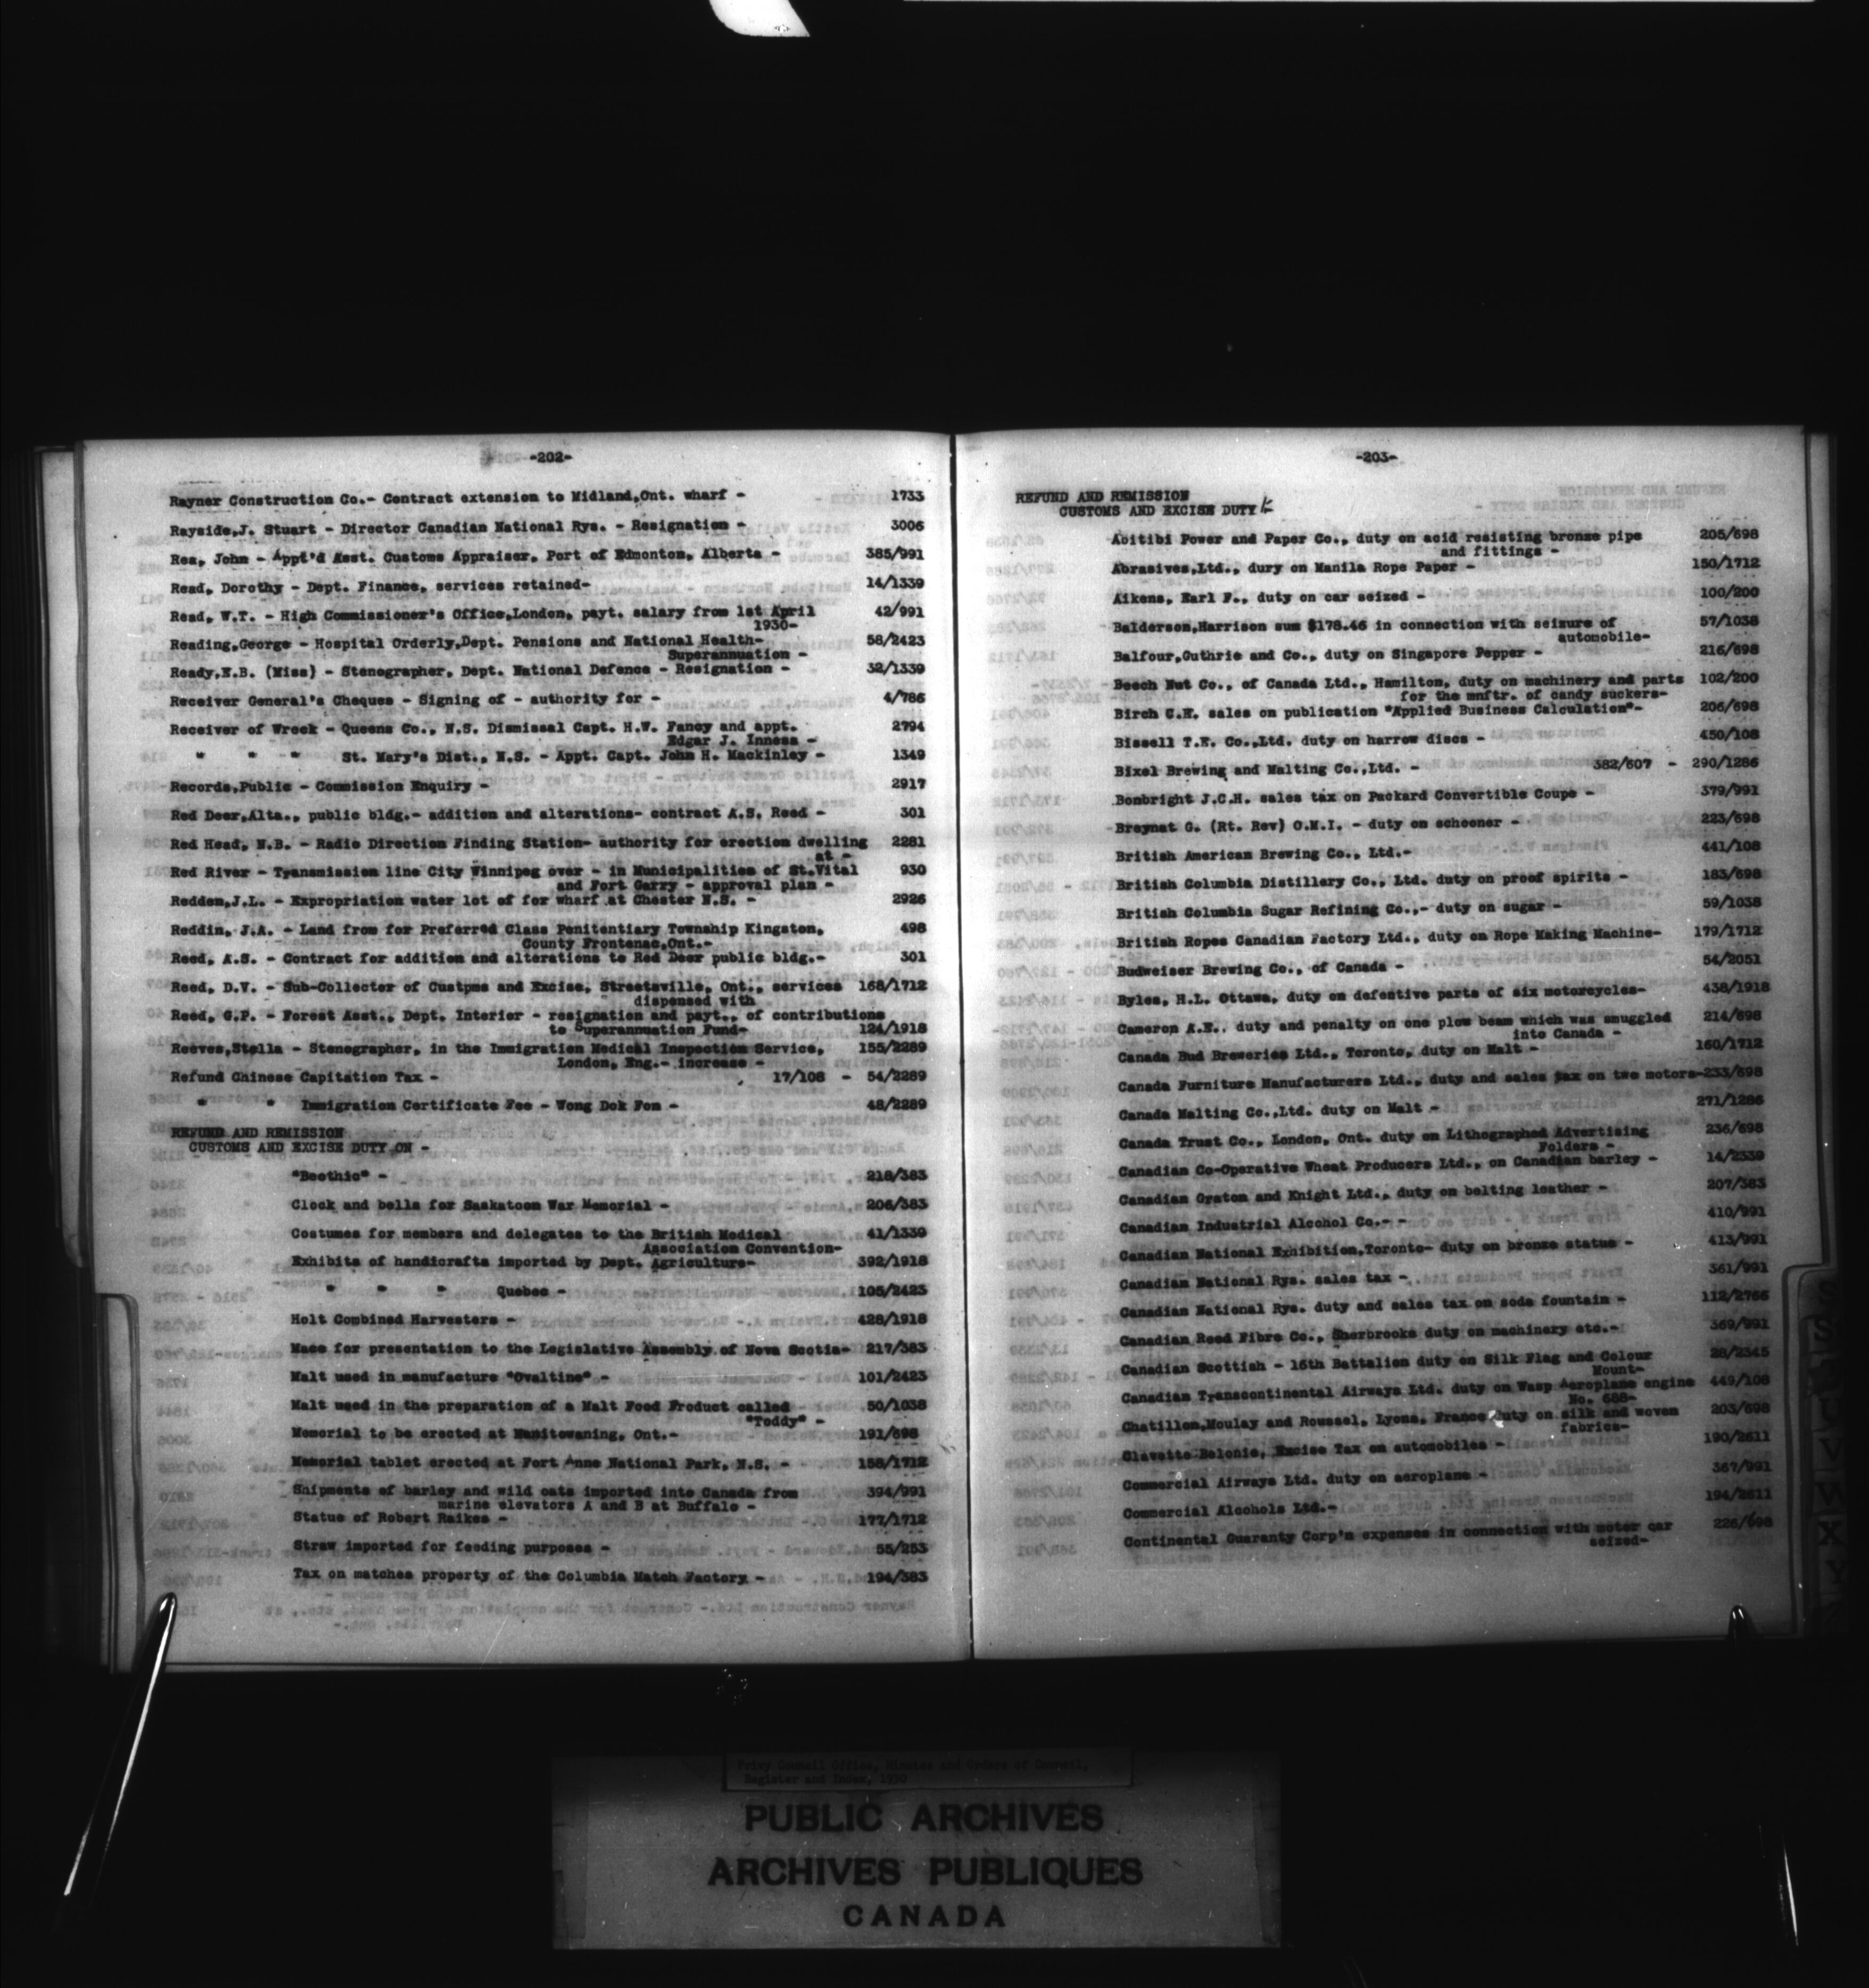 -202-
Rayner Construction Co.- Contract extension to Midland,Ont. wharf - 1733
Rayside,J. Stuart - Director Canadian National Rys. - Resignation - 3006
Rea, John - Appt'd Asst. Customs Appraiser, Port of Edmonton, Alberta - 385/991
Read, Dorothy - Dept. Finance, services retained- 14/1339
Read, W.T. - High Commissioner's Office,London, payt. salary from 1st April 42/991
1930-
Reading,George - Hospital Orderly,Dept. Pensions and National Health- 58/2423
Superannuation -
Ready,E.B. (Miss) - Stenographer, Dept. National Defence - Resignation - 32/1339
Receiver General's Cheques - Signing of - authority for - 4/786
Receiver of Wreck - Queens Co., N.S. Dismissal Capt. H.W. Fancy and appt. 2794
Edgar J. Inness -
" " " St. Mary's Dist., N.S. - Appt. Capt. John H. Mackinley - 1349
Records,Public - Commission Enquiry - 2917
Red Deer,Alta., public bldg.- addition and alterations- contract A.S. Reed - 301
Red Head, N.B. - Radio Direction Finding Station- authority for erection dwelling 2281
at -
Red River - Transmission line City Winnipeg over - in Municipalities of St.Vital 930
and Fort Garry - approval plan -
Redden,J.L. - Expropriation water lot of for wharf at Chester N.S. - 2926
Reddin, J.A. - Land from for Preferred Class Penitentiary Township Kingston, 498
County Frontenac,Ont.-
Reed, A.S. - Contract for addition and alterations to Red Deer public bldg.- 301
Reed, D.V. - Sub-Collector of Custpms and Excise, Streetsville, Ont., services 168/1712
dispensed with
Reed, G.P. - Forest Asst., Dept. Interior - resignation and payt., of contributions
to Superannuation Fund- 124/1918
Reeves,Stella - Stenographer, in the Immigration Medical Inspection Service, 155/2289
London, Eng.- increase -
Refund Chinese Capitation Tax - 17/108 - 54/2289
" " Immigration Certificate Fee - Wong Dok Fon - 48/2289
REFUND AND REMISSION
CUSTOMS AND EXCISE DUTY ON -
"Beothic" - 218/383
Clock and bells for Saskatoon War Memorial - 206/383
Costumes for members and delegates to the British Medical 41/1339
Association Convention-
Exhibits of handicrafts imported by Dept. Agriculture- 392/1918
" " " Quebec - 105/2423
Holt Combined Harvesters - 428/1918
Mace for presentation to the Legislative Assembly of Nova Scotia- 217/383
Malt used in manufacture "Ovaltine" - 101/2423
Malt used in the preparation of a Malt Food Product called 50/1038
"Toddy" -
Memorial to be erected at Manitowaning, Ont.- 191/698
Memorial tablet erected at Fort Anne National Park, N.S. - 158/1712
Shipments of barley and wild oats imported into Canada from 394/991
marine elevators A and B at Buffalo -
Statue of Robert Raikes - 177/1712
Straw imported for feeding purposes - 55/253
Tax on matches property of the Columbia Match Factory - 194/383
-203-
REFUND AND REMISSION
CUSTOMS AND EXCISE DUTY
Abitibi Power and Paper Co., duty on acid resisting bronze pipe 205/698
and fittings -
Abrasives,Ltd., dury on Manila Rope Paper - 150/1712
Aikens, Earl F., duty on car seized - 100/200
Balderson,Harrison sum $178.46 in connection with seizure of 57/1038
automobile-
Balfour,Guthrie and Co., duty on Singapore Pepper - 216/698
Beech Nut Co., of Canada Ltd., Hamilton, duty on machinery and parts 102/200
for the mnftr. of candy suckers-
Birch C.E. sales on publication "Applied Business Calculation"- 206/698
Bissell T.E. Co.,Ltd. duty on harrow discs - 450/108
Bixel Brewing and Malting Co.,Ltd. - 382/607 - 290/1286
Bonbright J.C.H. sales tax on Packard Convertible Coupe - 379/991
Breynat G. (Rt. Rev) O.M.I. - duty on schooner - 223/698
British American Brewing Co., Ltd.- 441/108
British Columbia Distillery Co., Ltd. duty on proof spirits - 183/698
British Columbia Sugar Refining Co.,- duty on sugar - 59/1038
British Ropes Canadian Factory Ltd., duty on Rope Making Machine- 179/1712
Budweiser Brewing Co., of Canada - 54/2051
Byles, H.L. Ottawa, duty on defective parts of six motorcycles- 438/1918
Cameron A.E.. duty and penalty on one plow beam which was smuggled 214/698
into Canada -
Canada Bud Breweries Ltd., Toronto, duty on Malt - 160/1712
Canada Furniture Manufacturers Ltd., duty and sales tax on two motors-233/698
Canada Malting Co.,Ltd. duty on Malt - 271/1286
Canada Trust Co., London, Ont. duty on Lithographed Advertising 236/698
Folders -
Canadian Co-Operative Wheat Producers Ltd., on Canadian barley - 14/2339
Canadian Graton and Knight Ltd., duty on belting leather - 207/383
Canadian Industrial Alcohol Co.- - 410/991
Canadian National Exhibition,Toronto- duty on bronze statue - 413/991
Canadian National Rys. sales tax - 361/991
Canadian National Rys. duty and sales tax on soda fountain - 112/2766
Canadian Reed Fibre Co., Sherbrooke duty on machinery etc.- 369/991
Canadian Scottish - 16th Battalion duty on Silk Flag and Colour 28/2345
Mount-
Canadian Transcontinental Airways Ltd. duty on Wasp Aeroplane engine 449/108
No. 688-
Chatillon,Moulay and Roussel, Lyons, France duty on silk and woven 203/698
fabrics-
Clavette Belonie, Excise Tax on automobiles - 190/2611
Commercial Airways Ltd. duty on aeroplane - 367/991
Commercial Alcohols Ltd.- 194/2611
Continental Guaranty Corp'n expenses in connection with motor car 226/698
seized-
S
U
V
W
X
Y
Privy Council Office, Minutes and Orders of Council,
Register and Index, 1930
PUBLIC ARCHIVES
ARCHIVES PUBLIQUES
CANADA